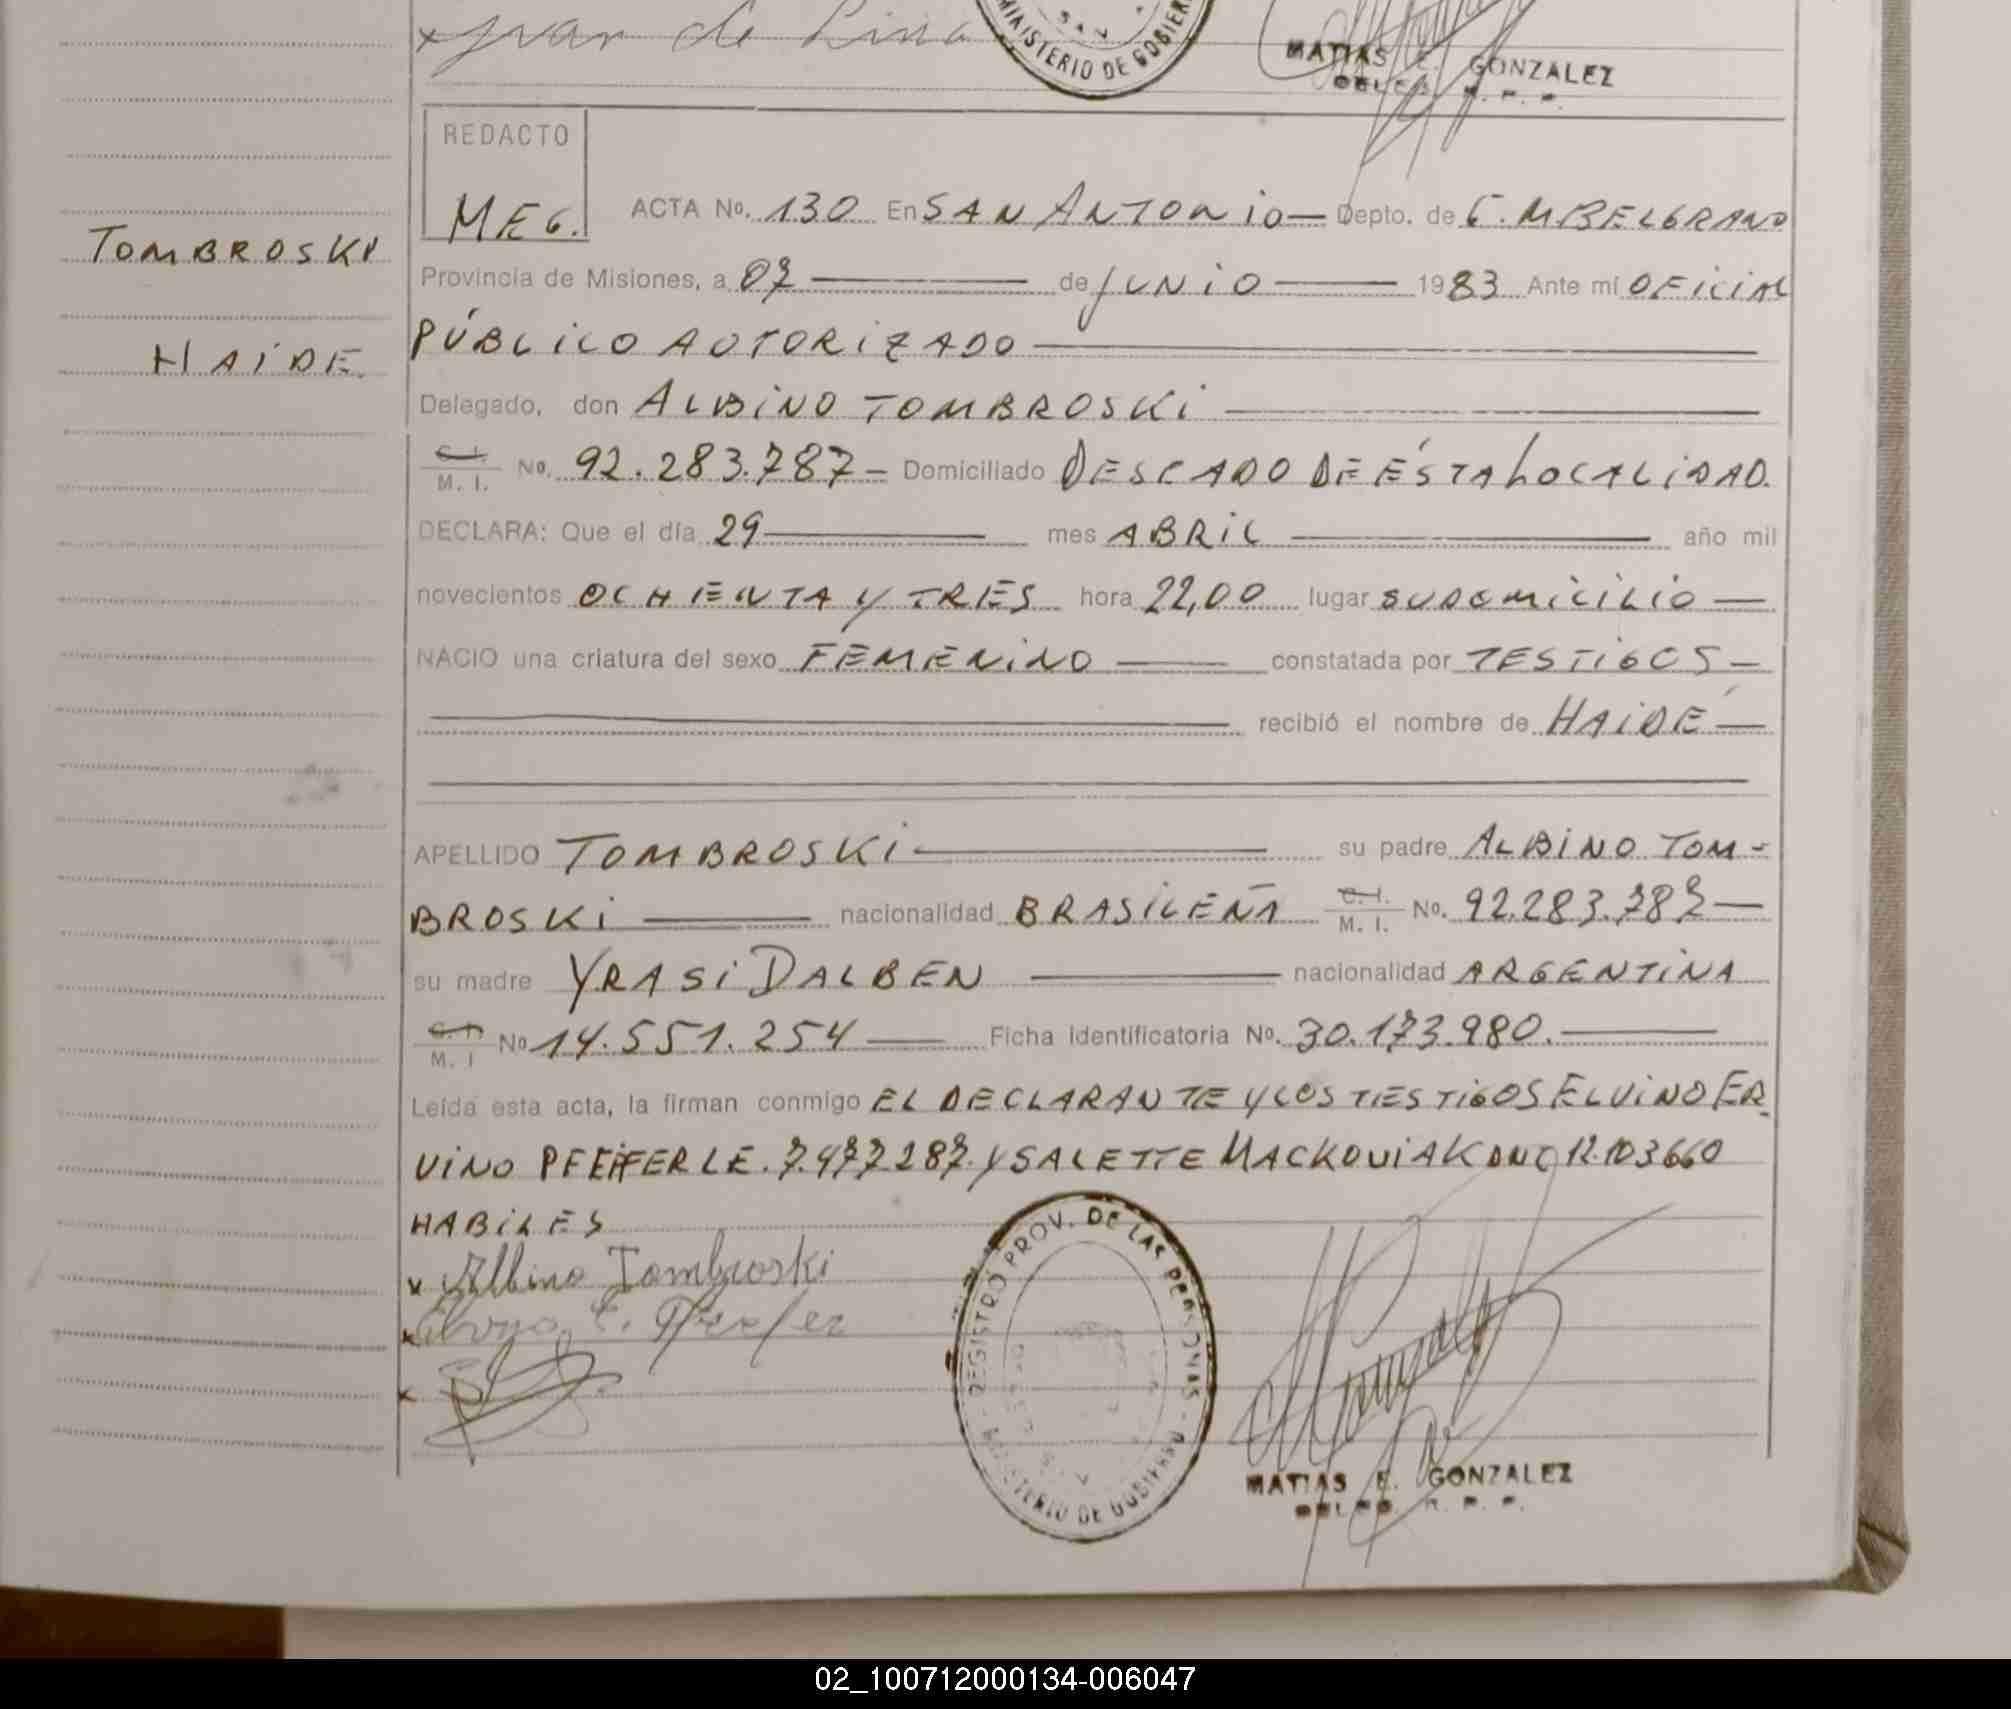 x Juan de Lima
MINISTERIO DE GOBIER
MATIAS E. GONZALEZ
REDACTO
MEG.
ACTA No. 130 En SAN ANTONIO — Depto. de G. M BELGRANO
TOMBROSKI
Provincia de Misiones, a 07 — de JUNIO — 1983 Ante mí OFICIAL
PÚBLICO AUTORIZADO —
HAIDE.
Delegado, don ALBINO TOMBROSKI —
C. I. / M. I. No. 92.283.787 — Domiciliado DESEADO DE ÉSTA LOCALIDAD.
DECLARA: Que el día 29 — mes ABRIL — año mil
novecientos OCHENTA Y TRES hora 22,00 lugar SU DOMICILIO —
NACIO una criatura del sexo FEMENINO — constatada por TESTIGOS —
— recibió el nombre de HAIDÉ —
APELLIDO TOMBROSKI — su padre ALBINO TOM-
BROSKI — nacionalidad BRASILEÑA C. I. / M. I. No. 92.283.787 —
su madre YRASI DALBEN — nacionalidad ARGENTINA
C. I. / M. I No 14.551.254 — Ficha identificatoria No. 30.173.980. —
Leída esta acta, la firman conmigo EL DECLARANTE Y LOS TESTIGOS ELVINO ER-
VINO PFEIFFER LE. 7.477.287. Y SALETTE MACKOVIAK DNI 12.103660
HABILES
x Albino Tombroski
REGISTRO PROV. DE LAS PERSONAS - MINISTERIO DE GOBIERNO
MATIAS E. GONZALEZ
02_100712000134-006047